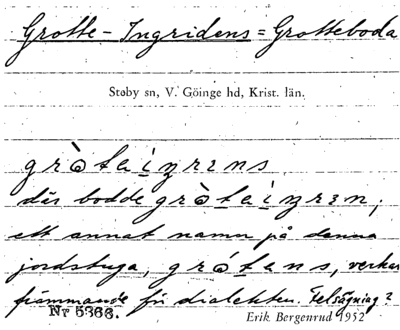 Grotte-Ingridens = Grotteboda
Støby sn, V. Göinge hd, Krist. län.
där bodde
ett annat namn på denna
jordstuga, verkar
främmande för dialekten. Felsägning?
Nr 5366.
Erik Bergenrud 1952